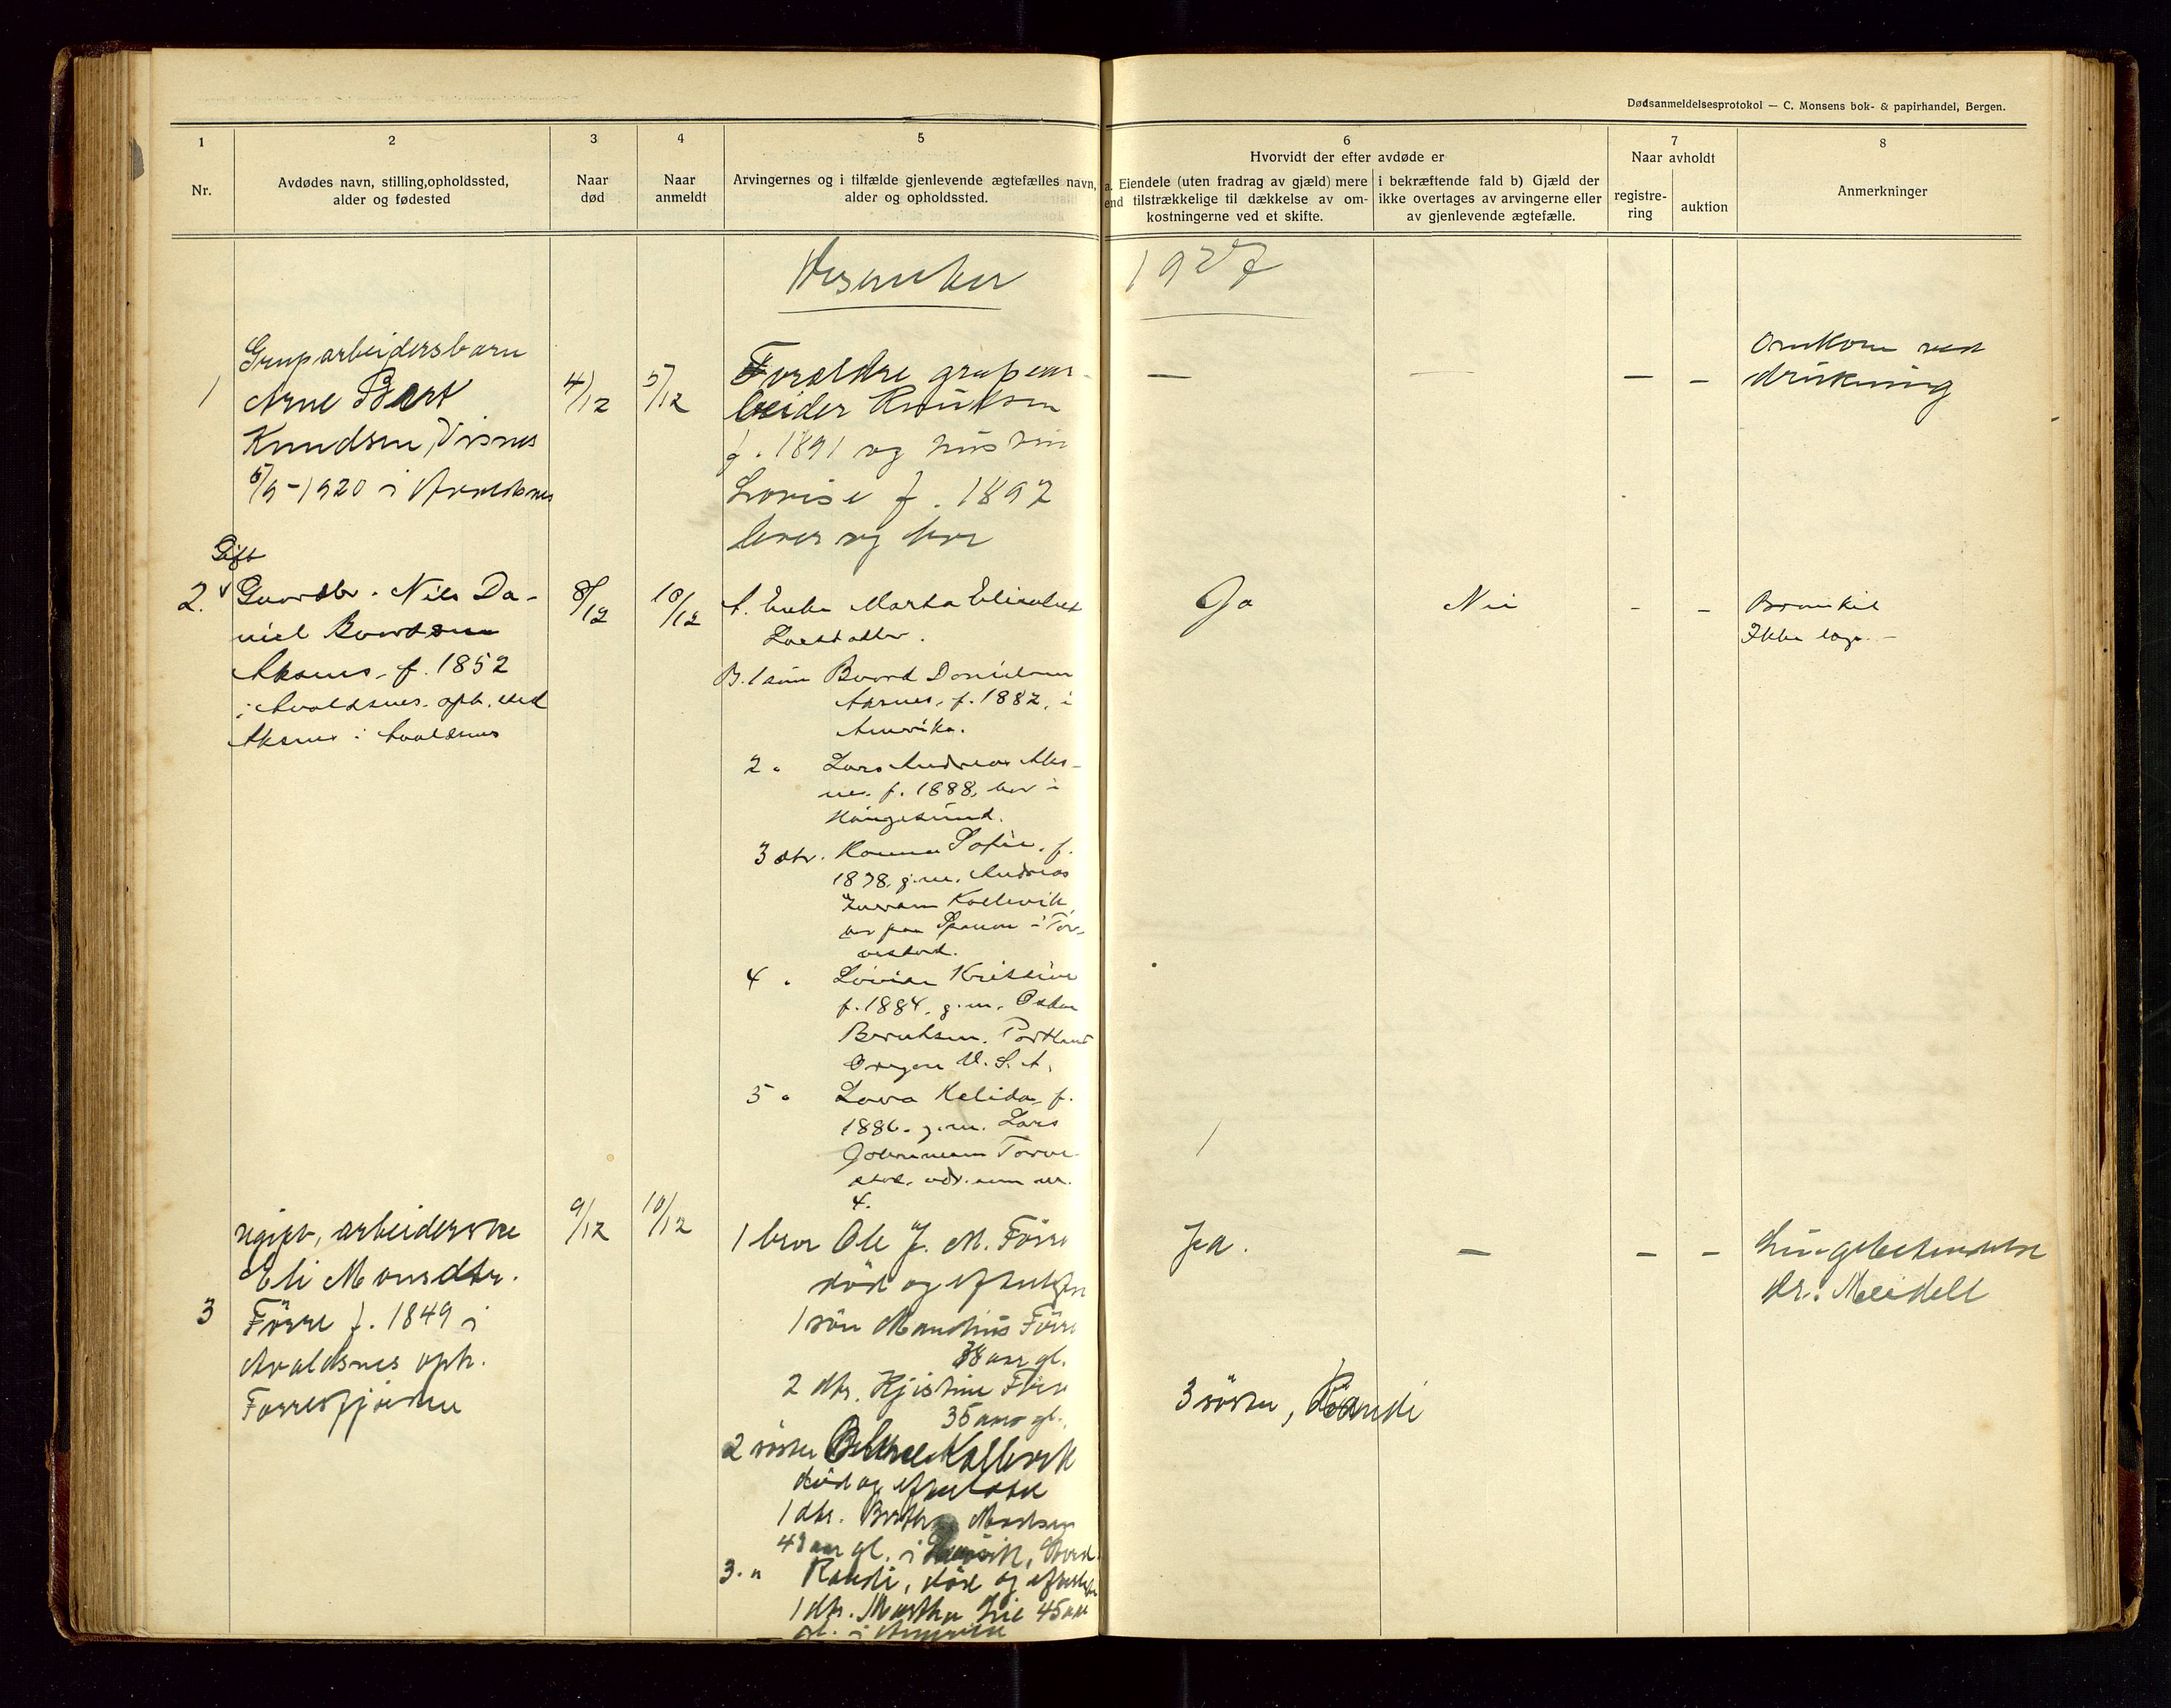 Dødsanmeldelsesprotokol — C. Monsens bok- & papirhandel, Bergen.
1
2
3
4
5
6
7
8
Nr.
Avdødes navn, stilling, opholdssted,
alder og fødested
Naar
død
Naar
anmeldt
Arvingernes og i tilfælde gjenlevende ægtefælles navn,
alder og opholdssted.
Hvorvidt der efter avdøde er
a. Eiendele (uten fradrag av gjæld) mere
end tilstrækkelige til dækkelse av om-
kostningerne ved et skifte.
i bekræftende fald b) Gjæld der
ikke overtages av arvingerne eller
av gjenlevende ægtefælle.
Naar avholdt
registre-
ring
auktion
Anmerkninger
Desember 1927
1
Gruparbeidersbarn
Arne Bert
Knudsen, Visnes
5/9-1920 i Avaldsnes
4/12
5/12
Foreldre grupear-
beider Knutsen
f. 1891 og hustru
Lovise f. 1897
lever og bor
—
—
—
—
Omkom ved
drukning
Gift
2.
Gaardbr. Nils Da-
niel Baardsen
Aksnes, f. 1852
i Avaldsnes, oph. sted
Aksnes i Avaldsnes
8/12
10/12
A. Enke Marta Elisabet
Larsdatter.
B. 1 søn Baard Danielsen
Aksnes, f. 1882, i
Amerika.
2 " Lars Andreas Aks-
nes f. 1888, bor i
Haugesund.
3 dtr. Hanna Sofie, f.
1878, g.m. Andreas
Kallevik,
bor paa Spanne i Tor-
vestad.
4 " Lovise Kristine
f. 1884, g.m. Oskar
Berntsen, Portland
Oregon U.S.A.
5 " Lava Helida f.
1886, g.m. Lars
Torve-
stad, adr. som nr.
4.
Ja
Nei
-
-
Bronkit
Ikke læge -
3
Ugift, arbeiderske
Eli Monsdtr.
Førre f. 1849 i
Avaldsnes oph.
Førresfjorden
9/12
10/12
1 bror Ole J. M. Førre
død og efterladt
1 søn Mandius Førre
38 aar gl.
2 dtr. Kjistine Førre
35 aar gl.
2 søster Kallevik
død og efterladt
1 dtr. Berthe Madsen
49 aar gl. i
3. " Randi, død og efterladt
1 dtr. Martha Lie 45 aar
gl. i Amerika
Ja.
—
—
—
Lungebetændelse
dr. Meidell
3 søster, Randi